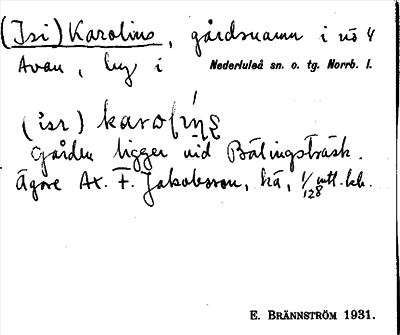 (Isi) Karolins, gårdsnamn i nö 4
Avan, by i Nederluleå sn. o. tg. Norrb. l.
(isı) karolı̨ns
Gården ligger vid Bälingsträsk.
Ägare Ax. F. Jakobsson, kä, 1/128 mtl. kr.
E. BRÄNNSTRÖM 1931.